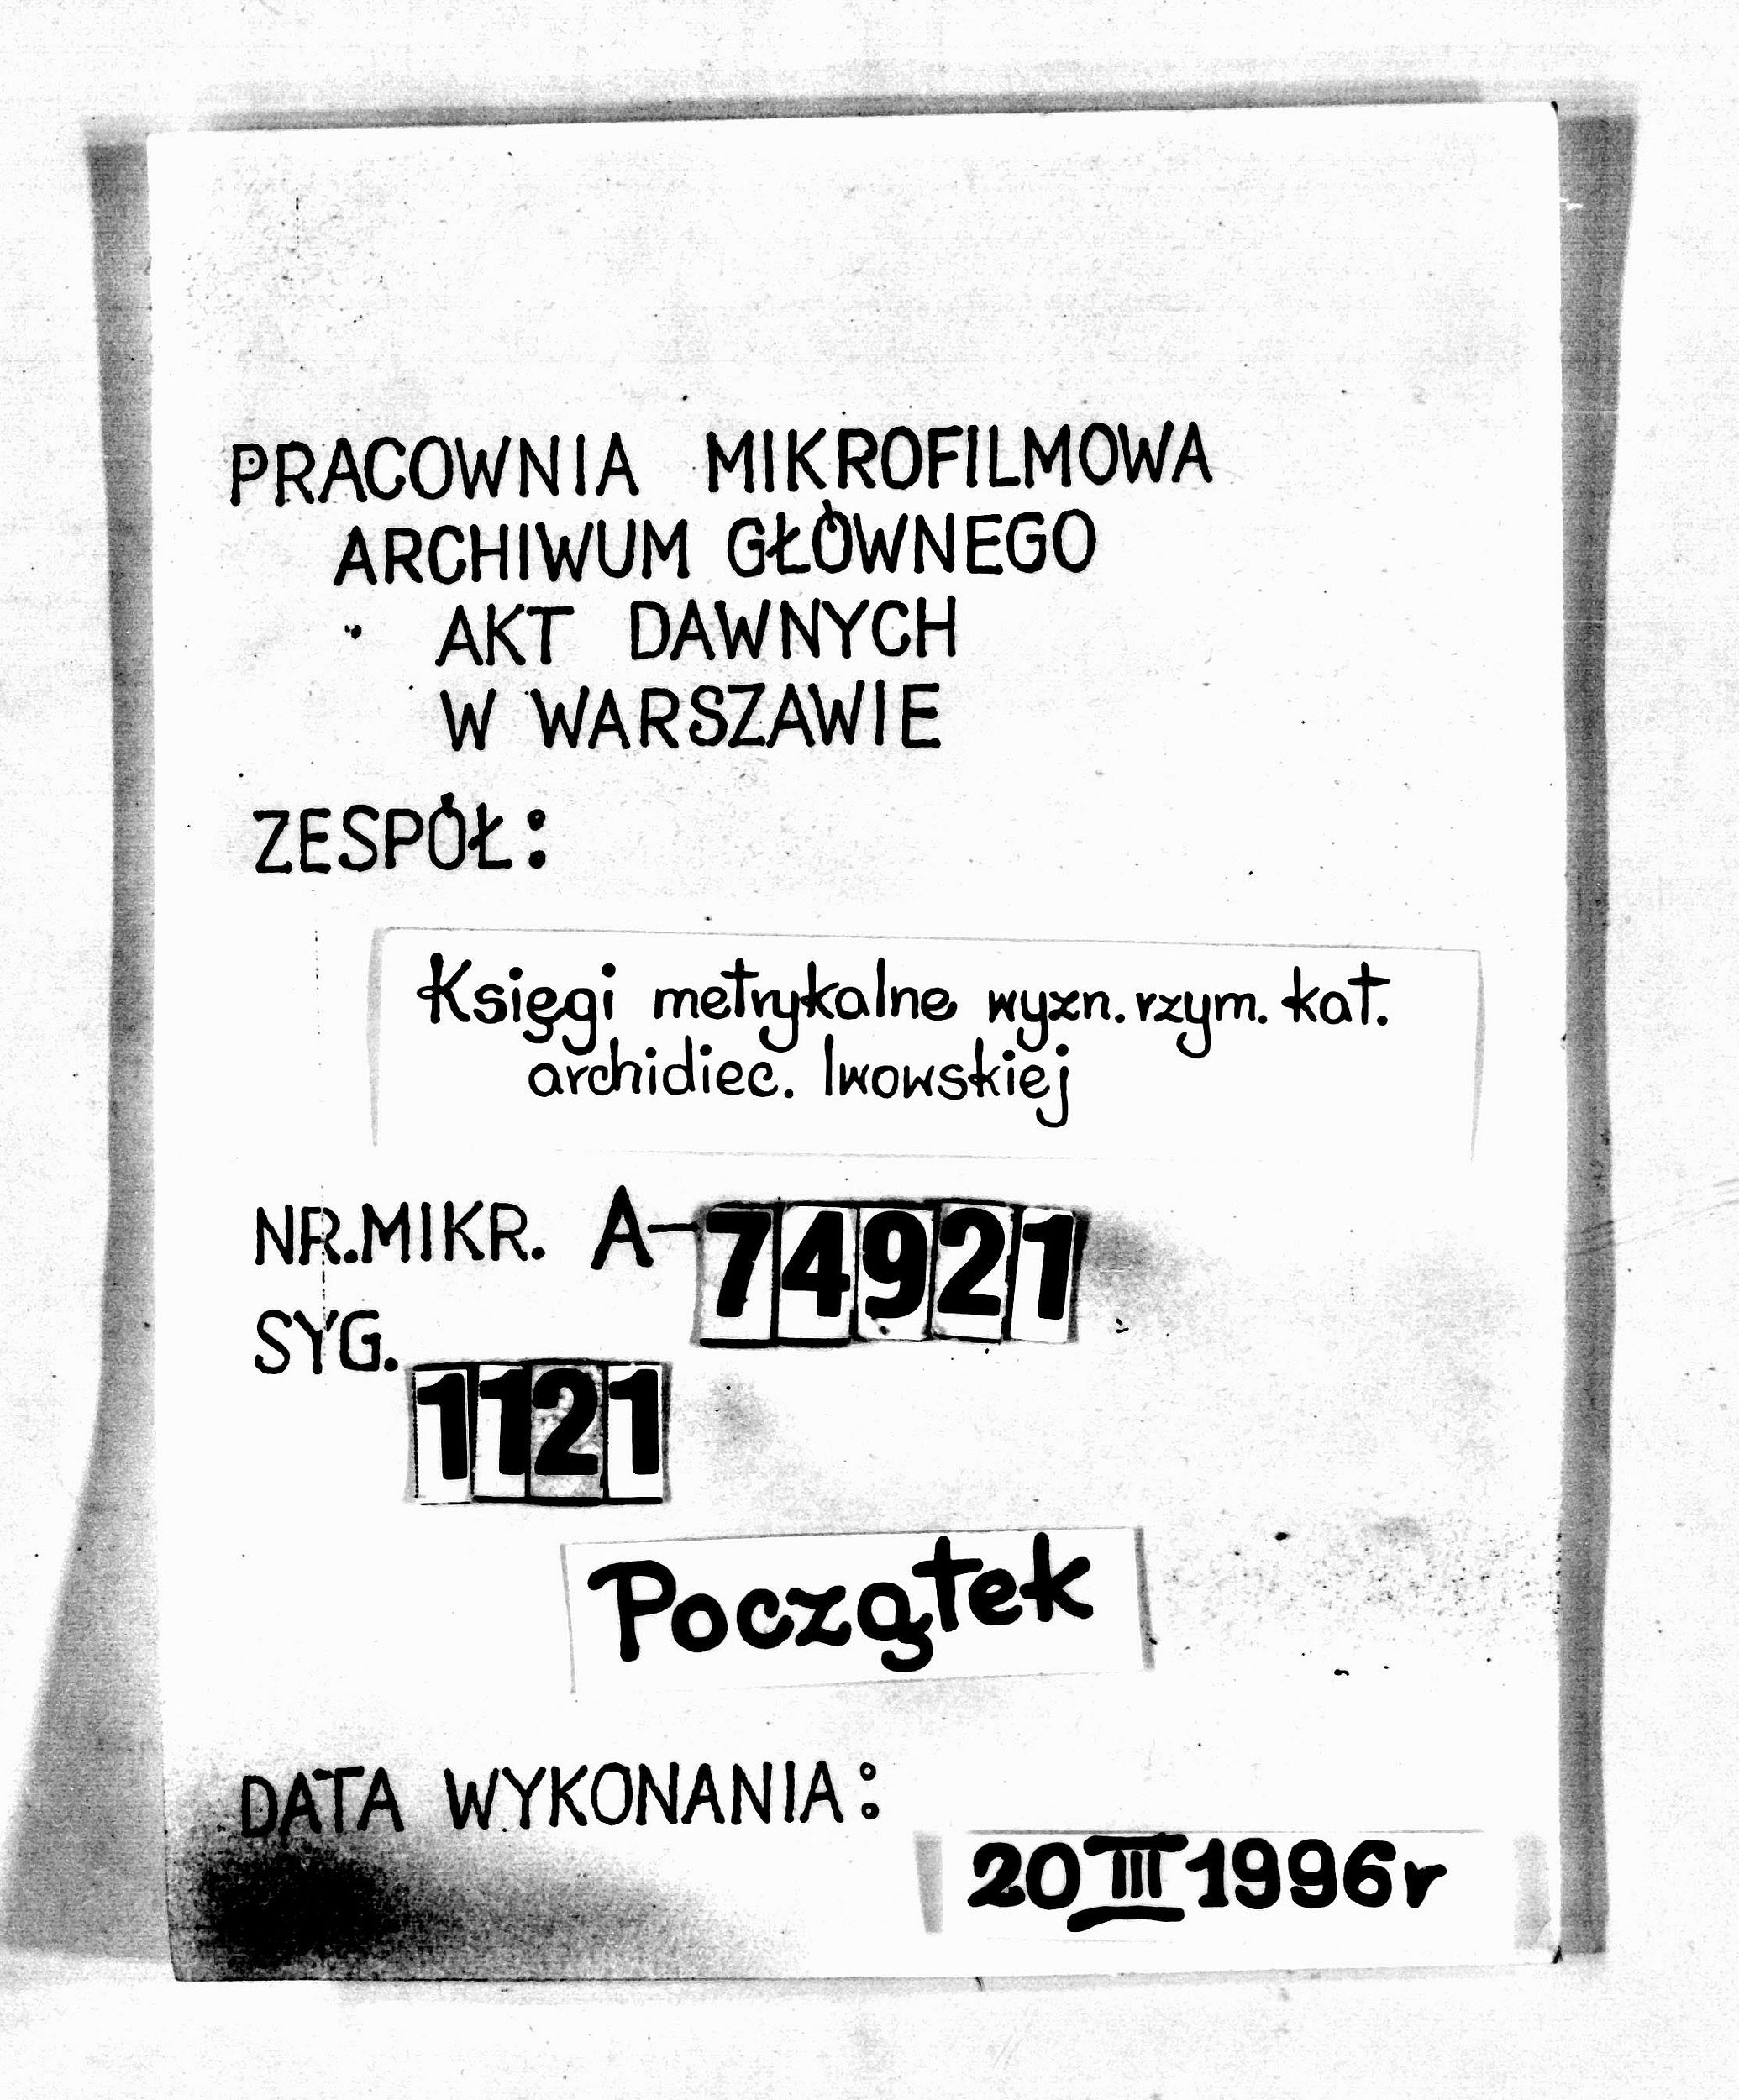 PRACOWNIA MIKROFILMOWA
ARCHIWUM GŁÓWNEGO
AKT DAWNYCH
W WARSZAWIE
ZESPÓŁ:
Księgi metrykalne wyzn. rzym. kat.
archidiec. lwowskiej
NR. MIKR. A-74921
SYG. 1121
Początek
DATA WYKONANIA:
20 III 1996r